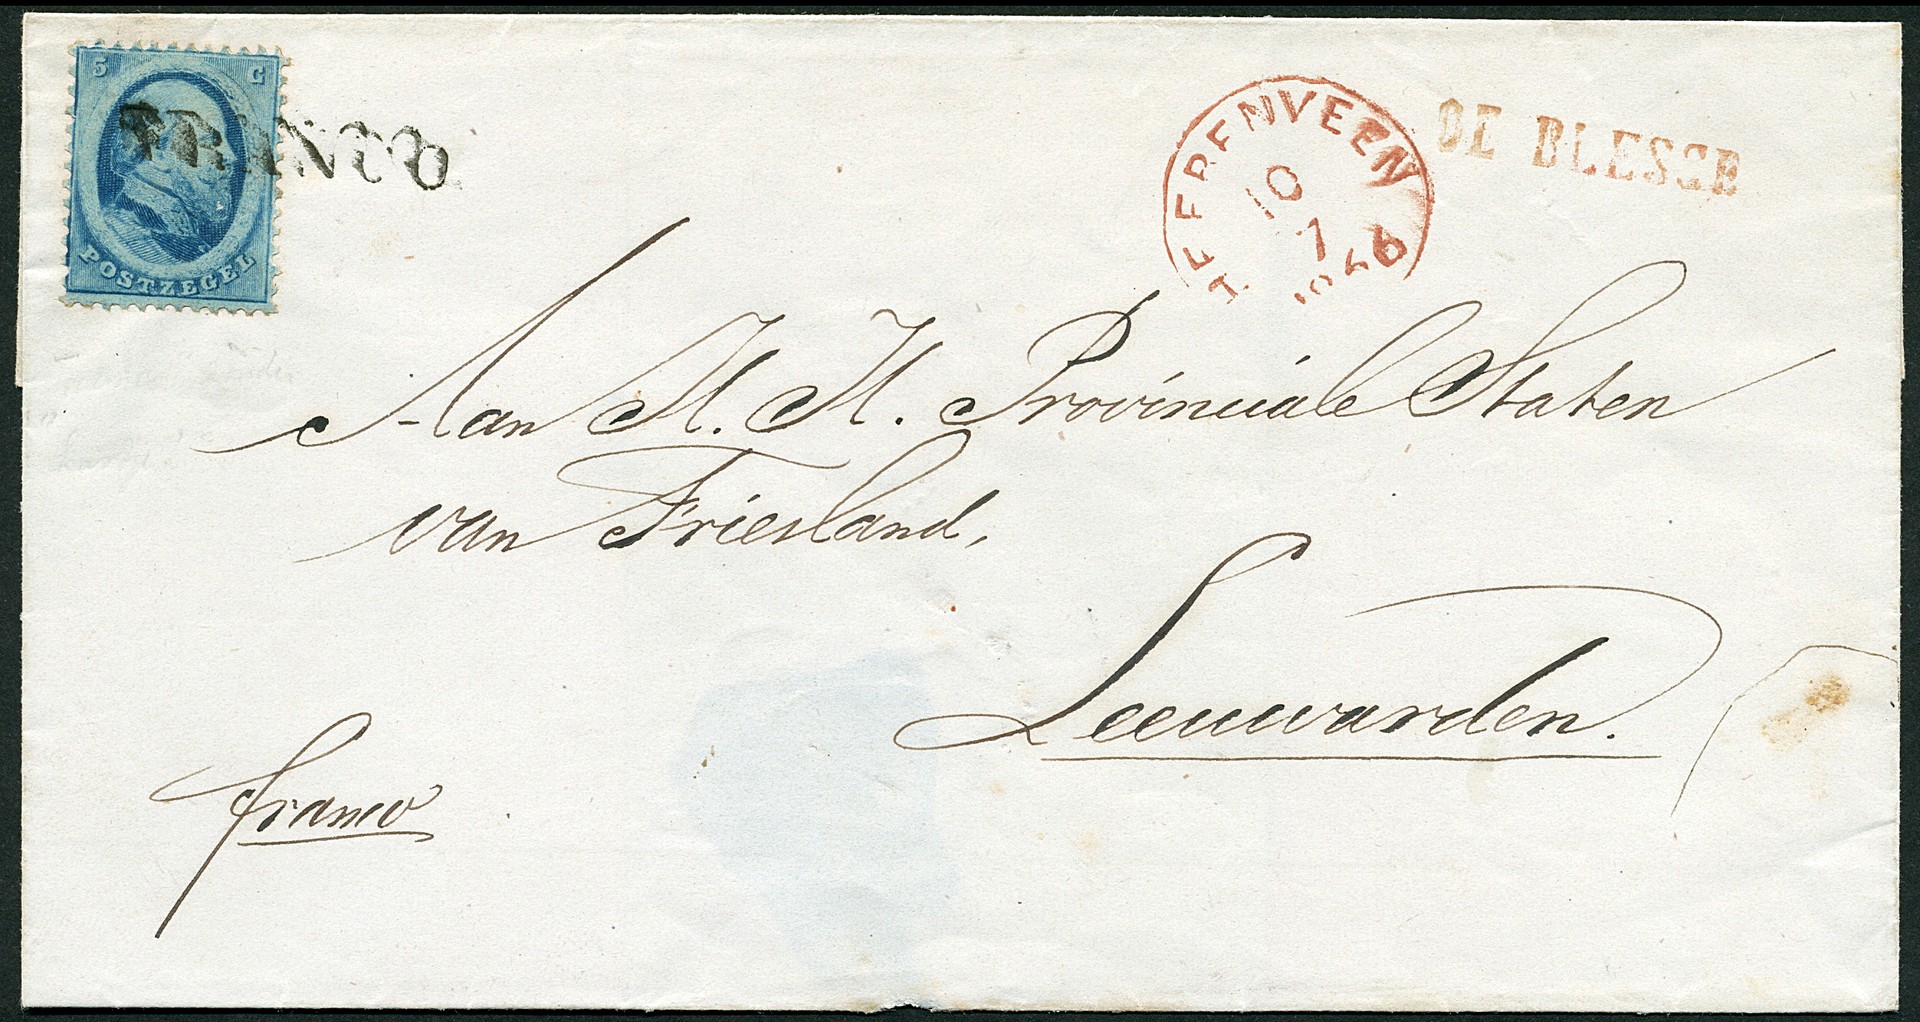 5 C
POSTZEGEL
FRANCO
HEERENVEEN
10
7
1866
DE BLESSE
Aan H. H. Provinciale Staten
van Friesland,
Leeuwarden.
franco